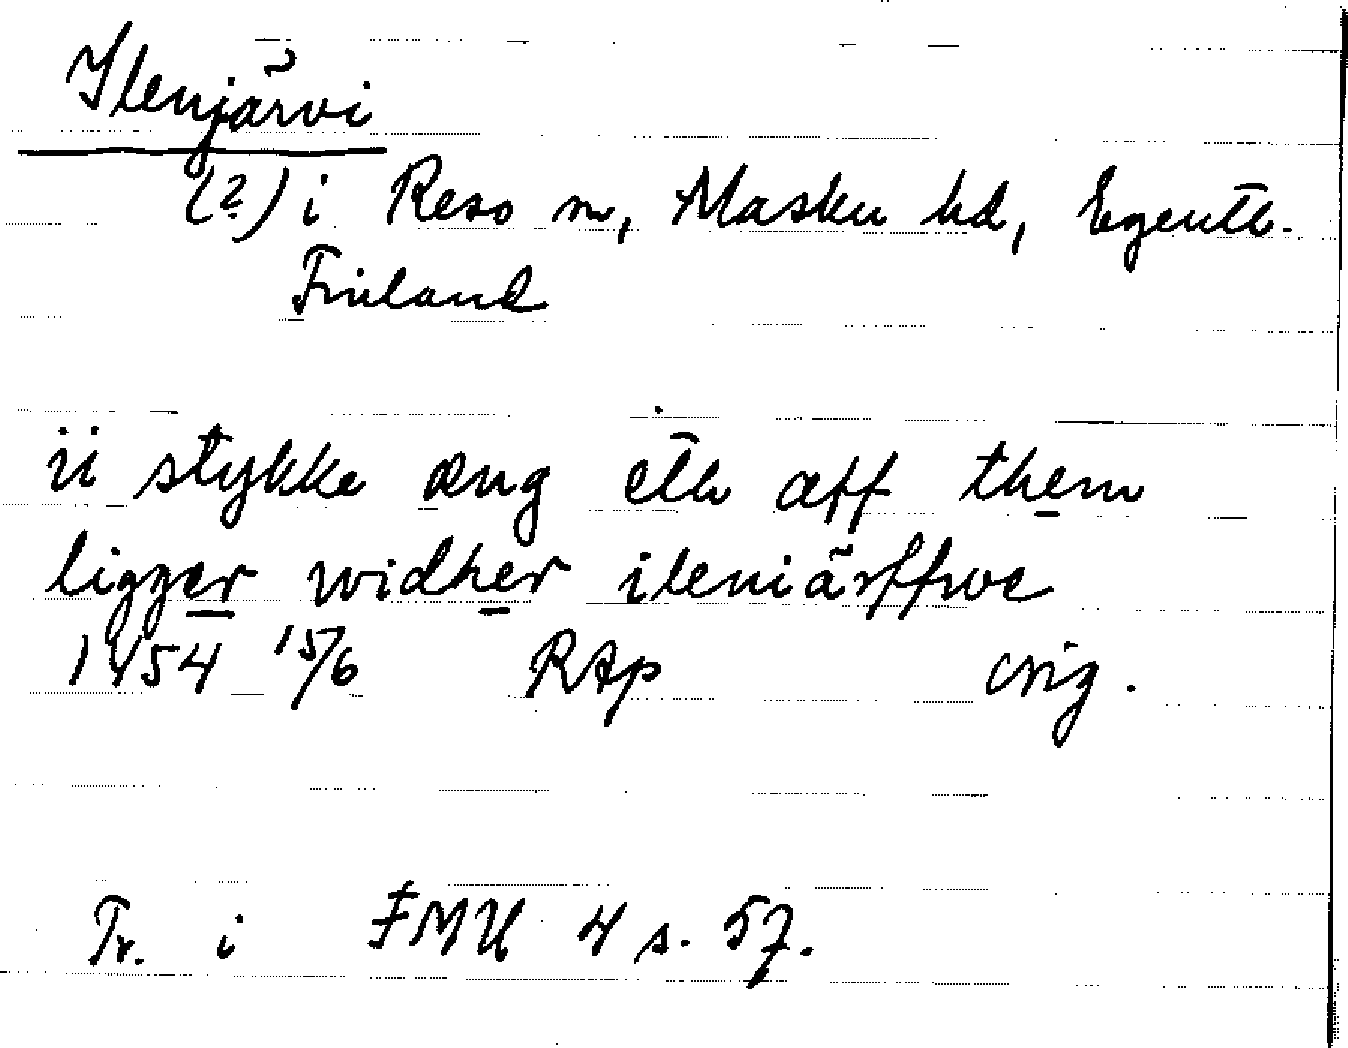 Ilenjärvi
(?) i Reso sn, Masku hd, Egentl.
Finland
ii stykke æng eth aff them
ligger widher ileniärffwe
1454 15/6 RAp orig.
Tr. i FMU 4 s. 57.